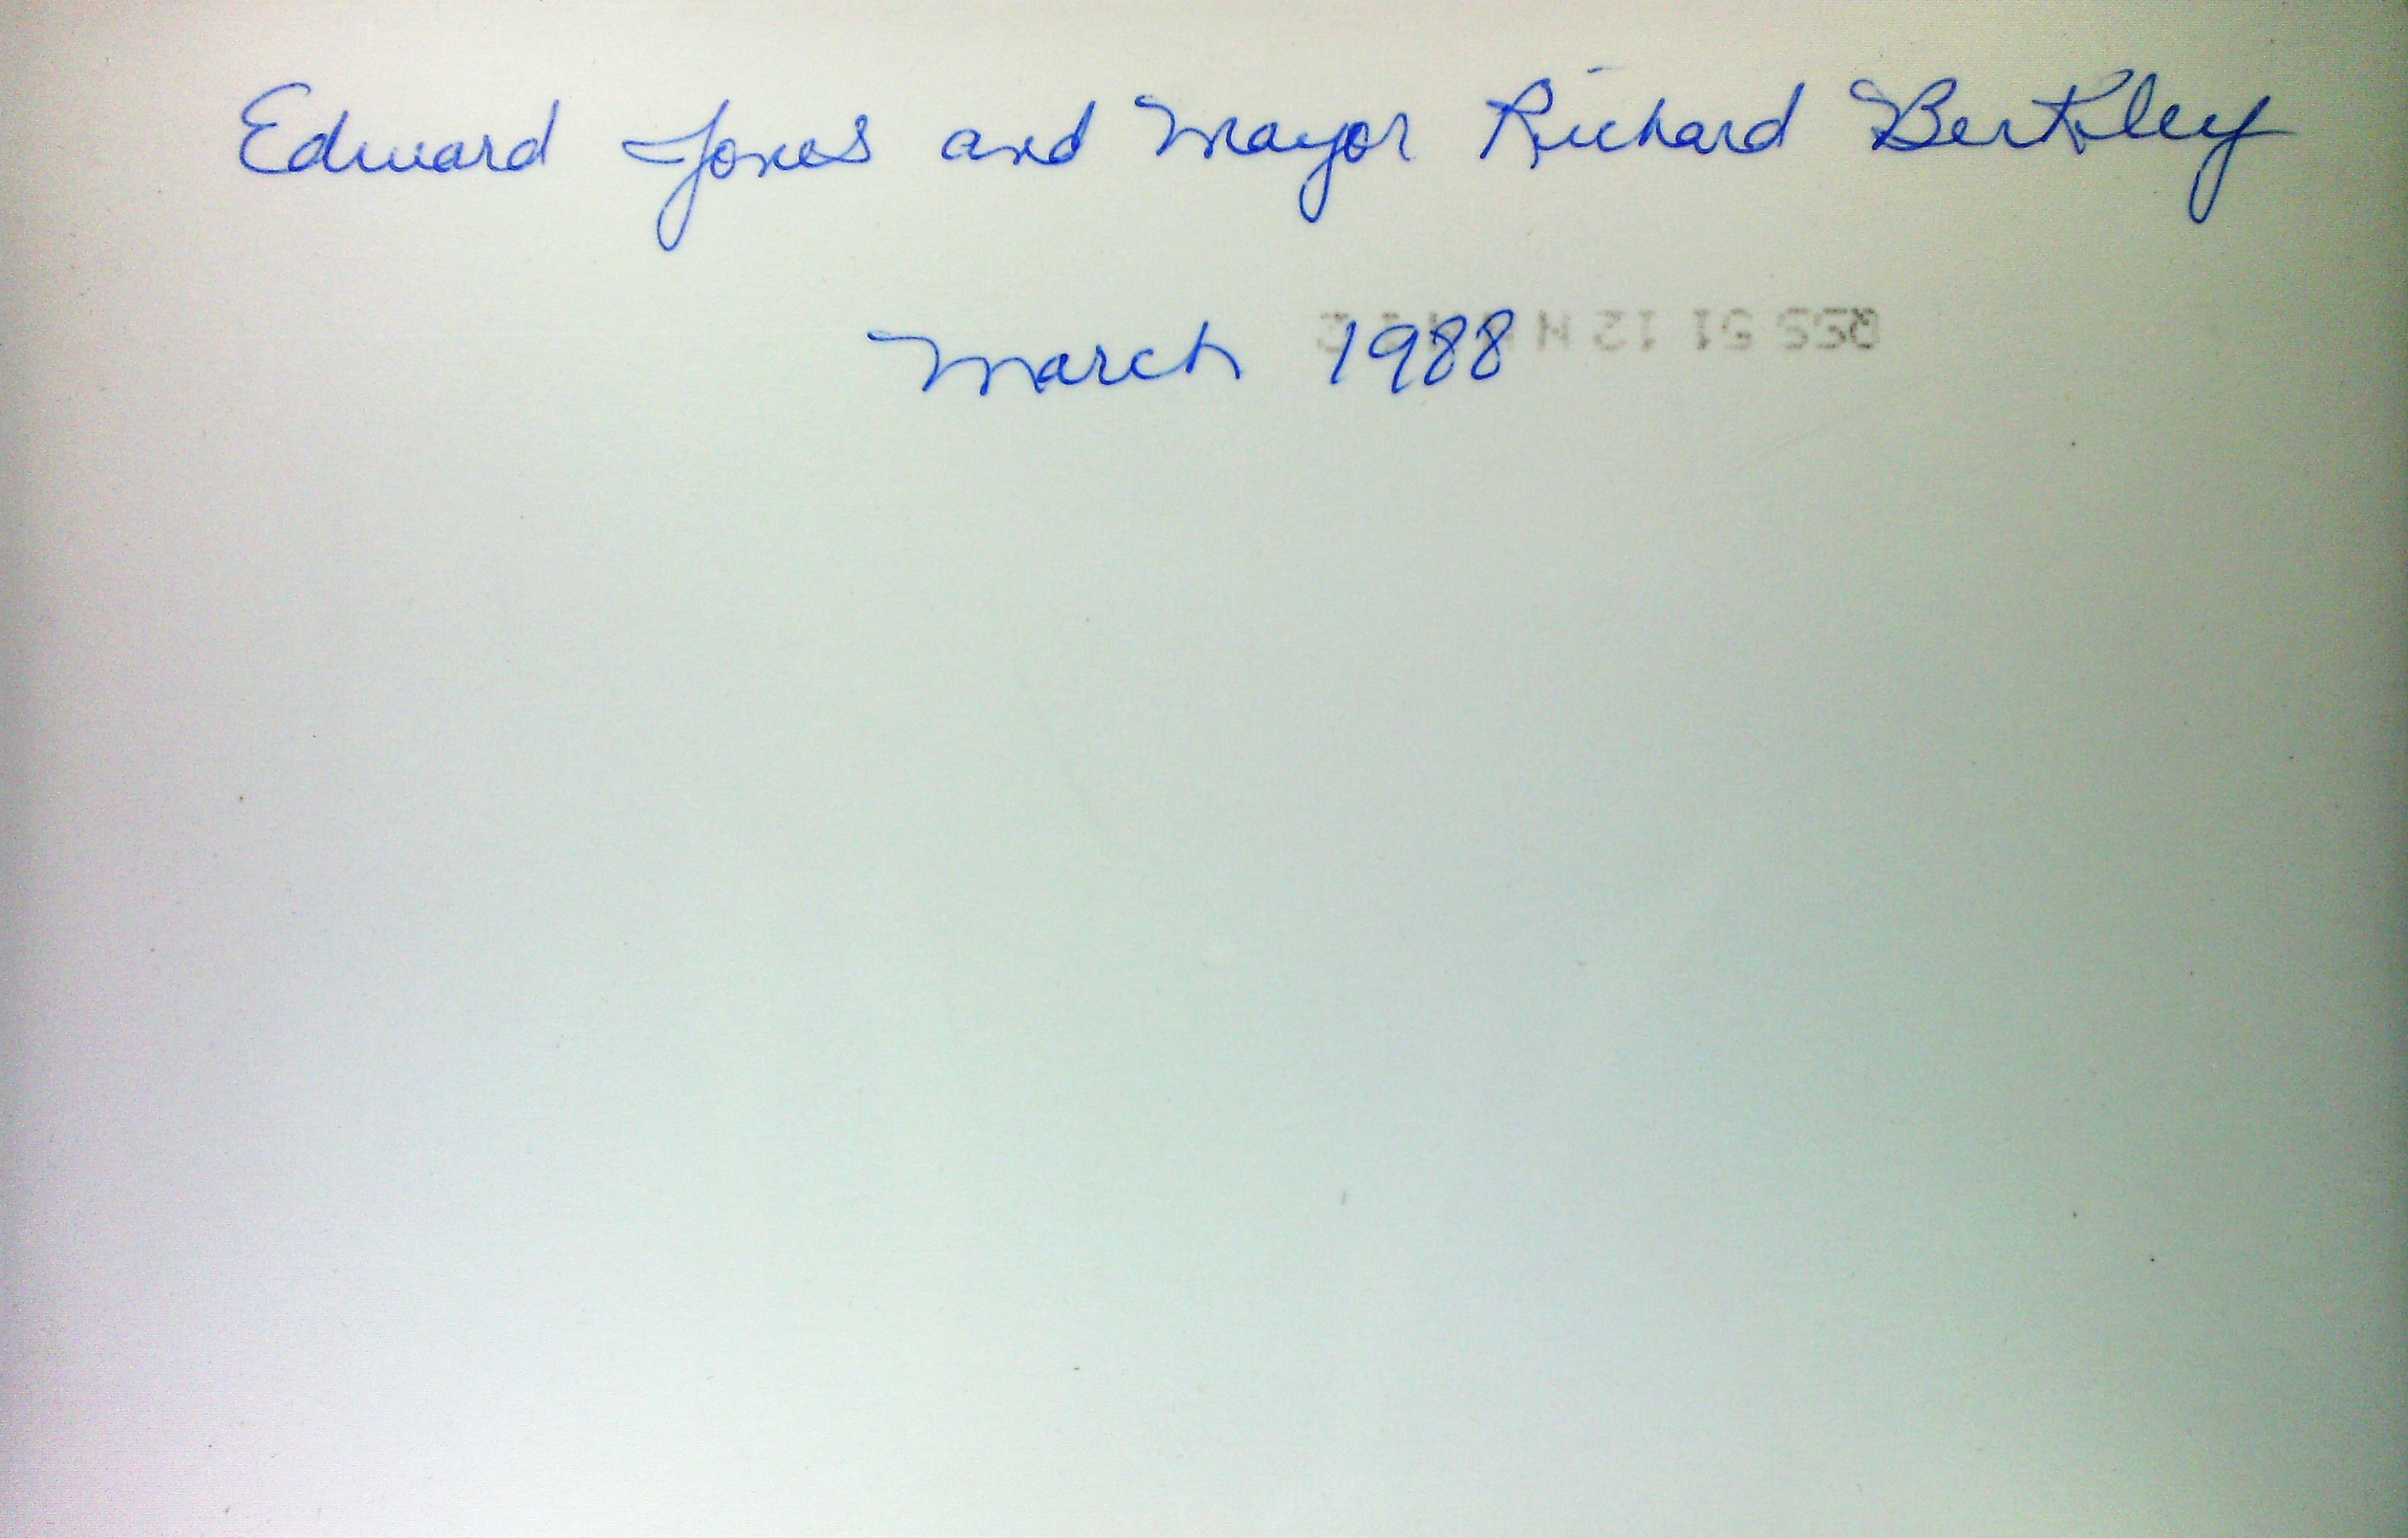 Edward Jones and Mayor Richard Berkley
March 1988